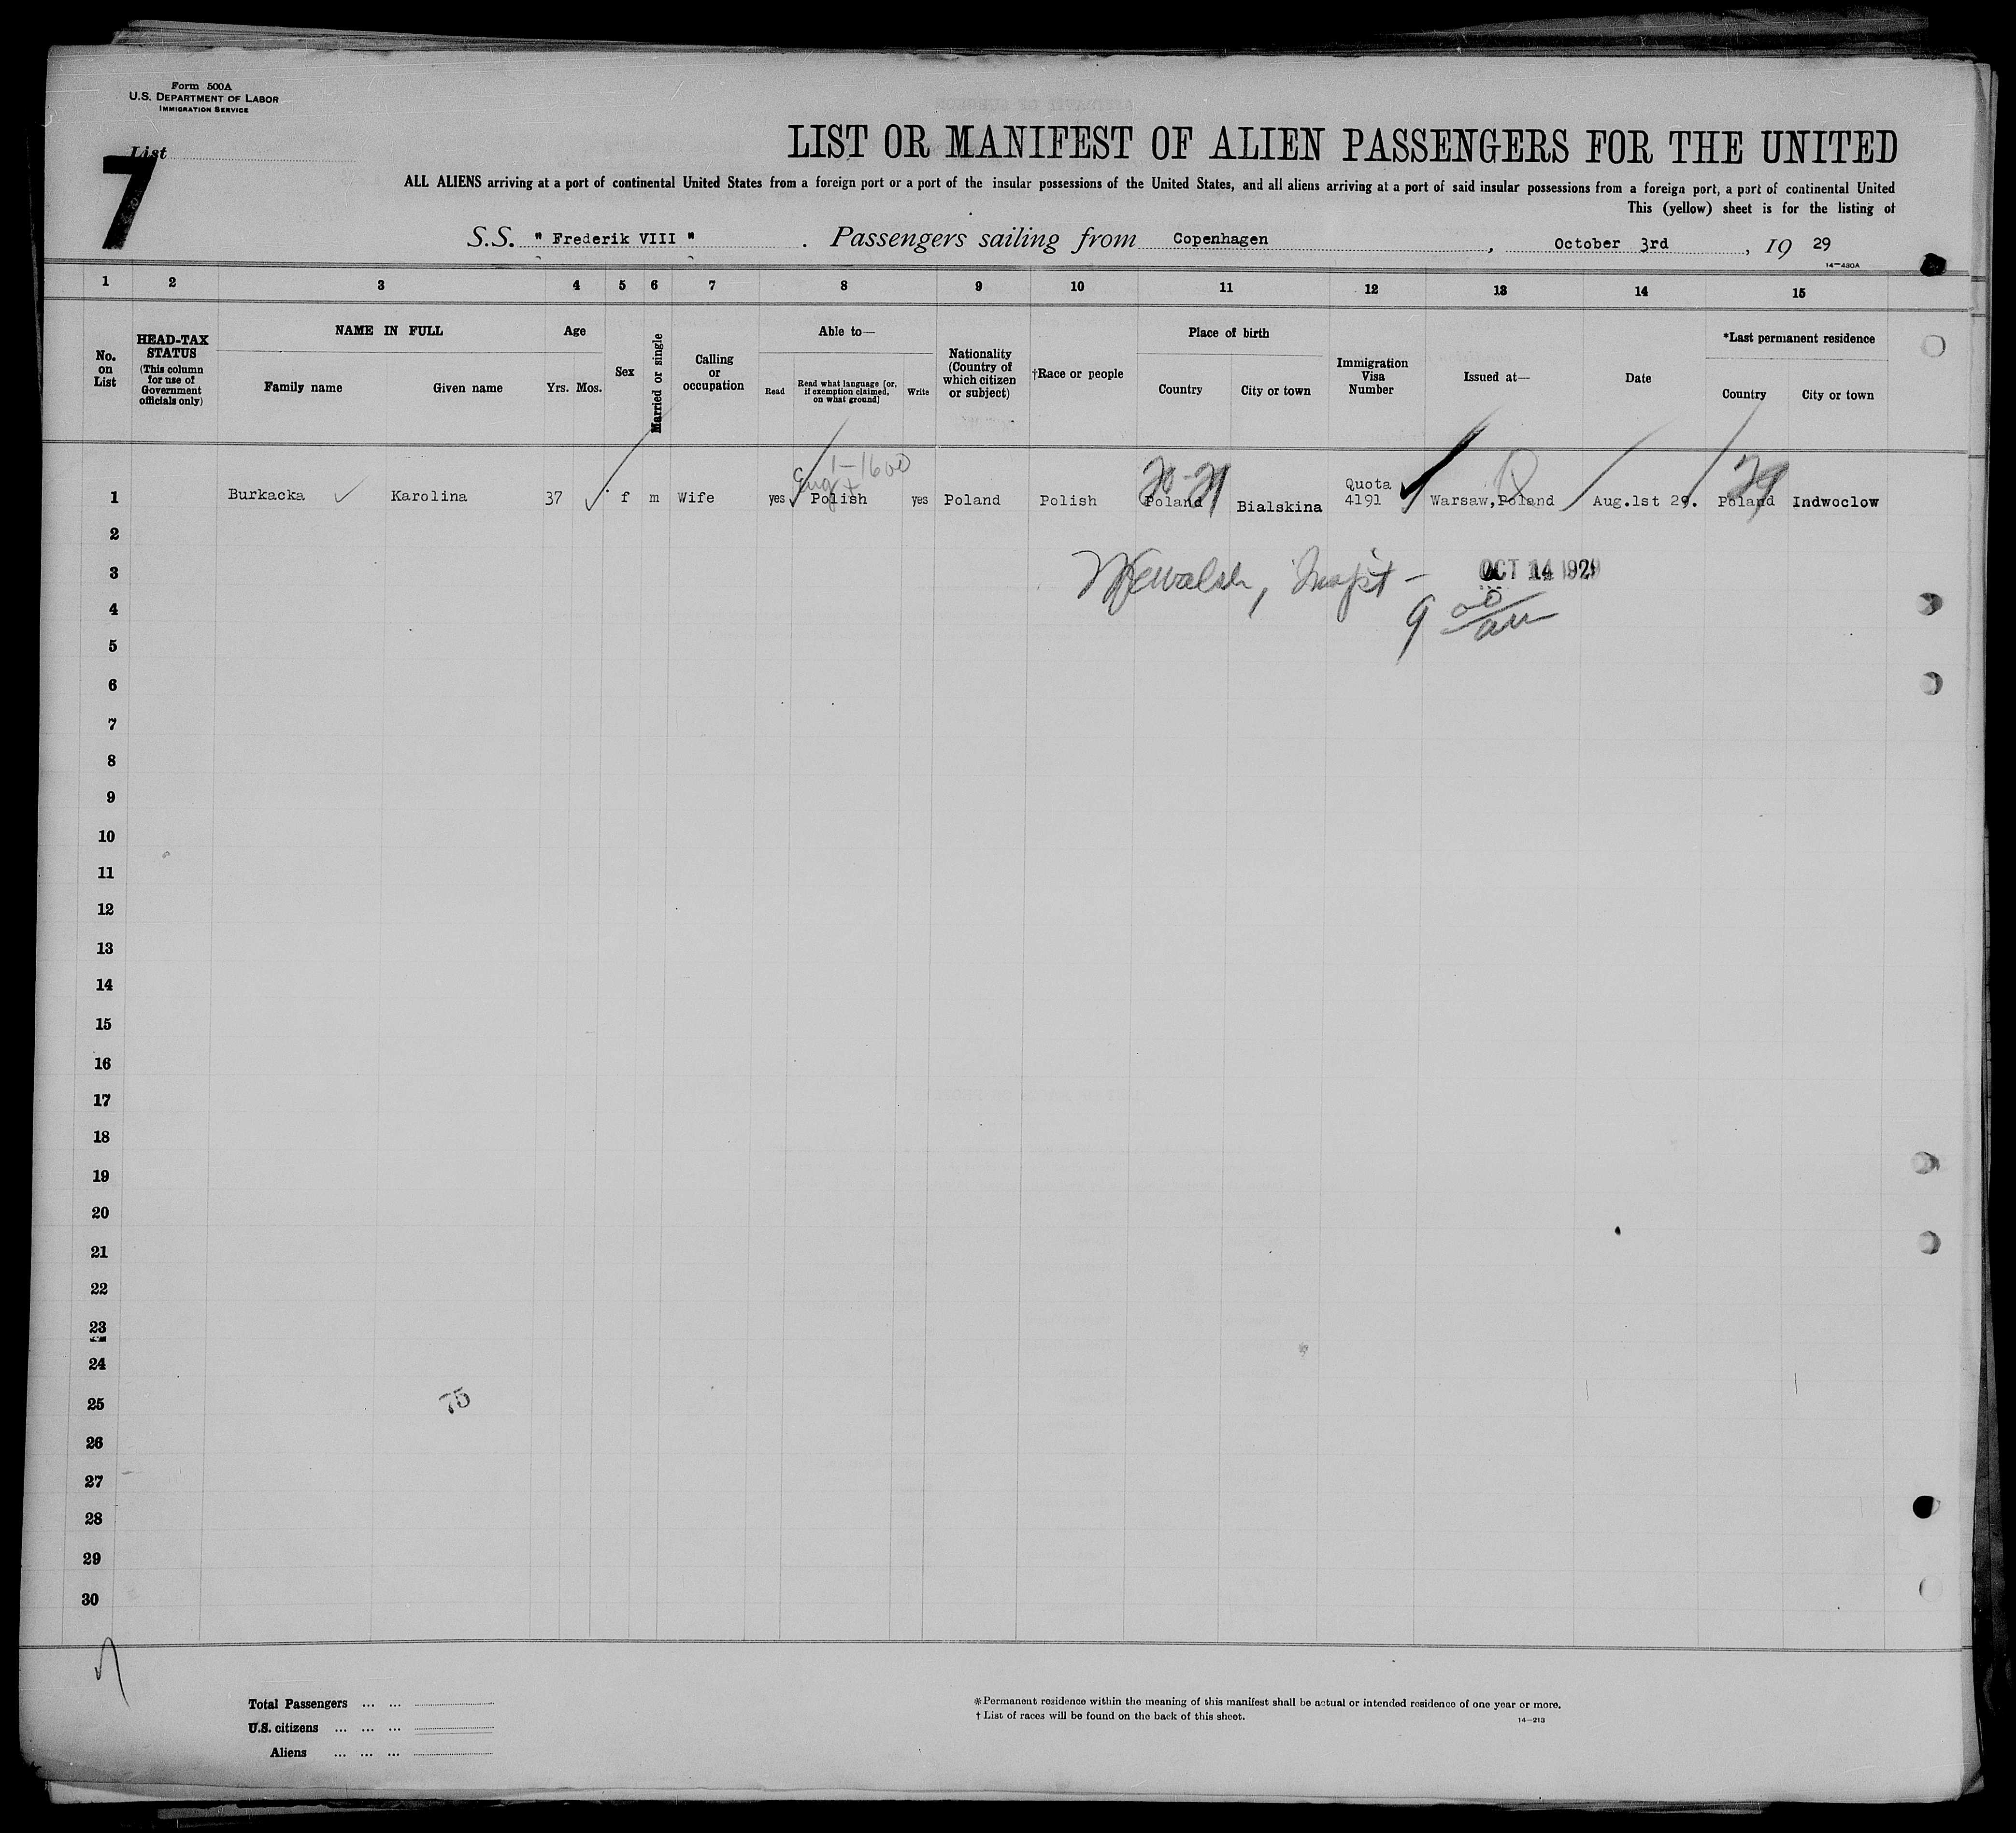 Form 500A
U.S. DEPARTMENT OF LABOR
IMMIGRATION SERVICE
List
7
LIST OR MANIFEST OF ALIEN PASSENGERS FOR THE UNITED
ALL ALIENS arriving at a port of continental United States from a foreign port or a port of the insular possessions of the United States, and all aliens arriving at a port of said insular possessions from a foreign port, a port of continental United
This (yellow) sheet is for the listing of
S.S. " Frederik VIII " . Passengers sailing from Copenhagen , October 3rd , 19 29
14—430A
1 2 3 4 5 6 7 8 9 10 11 12 13 14 15
No. on List
HEAD-TAX STATUS
(This column for use of Government officials only)
NAME IN FULL
Family name Given name
Age
Yrs. Mos.
Sex
Married or single
Calling or occupation
Able to—
Read
Read what language [or, if exemption claimed, on what ground]
Write
Nationality (Country of which citizen or subject)
†Race or people
Place of birth
Country City or town
Immigration Visa Number
Issued at—
Date
*Last permanent residence
Country City or town
1–1600
Eng
20-21
29
1 Burkacka Karolina 37 f m Wife yes Polish yes Poland Polish Poland Bialskina Quota 4191 Warsaw,Poland Aug.1st 29. Poland Indwoclow
2
3 Walsh, Inspt – OCT 14 1929
4 9 00/am
5
6
7
8
9
10
11
12
13
14
15
16
17
18
19
20
21
22
23
24
25
75
26
27
28
29
30
Total Passengers ... ...
U.S. citizens ... ... ...
Aliens ... ... ...
*Permanent residence within the meaning of this manifest shall be actual or intended residence of one year or more.
† List of races will be found on the back of this sheet.
14—213